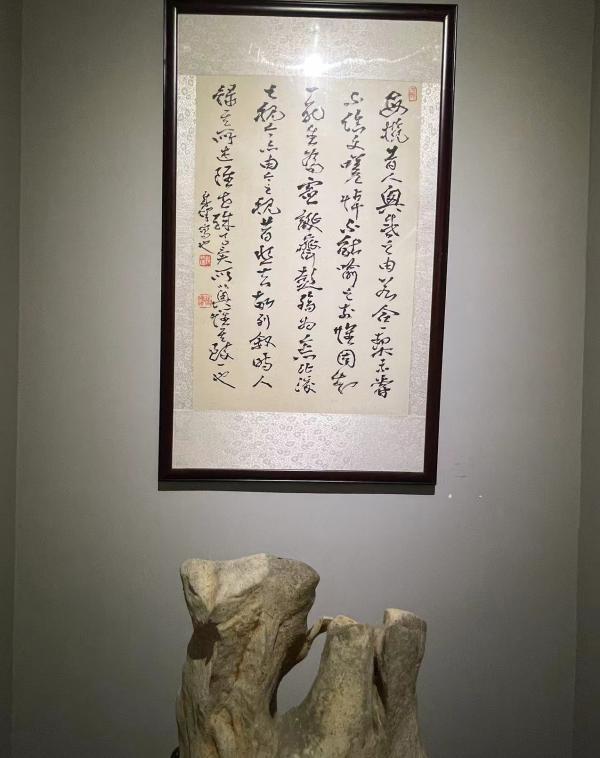 每攬昔人興感之由若合一契未嘗
不臨文嗟悼不能喻之於懷固知
一死生為虛誕齊彭殤為妄作後
之視今亦由今之視昔悲夫故列叙時人
錄其所述雖世殊事異所以興懷其致一也